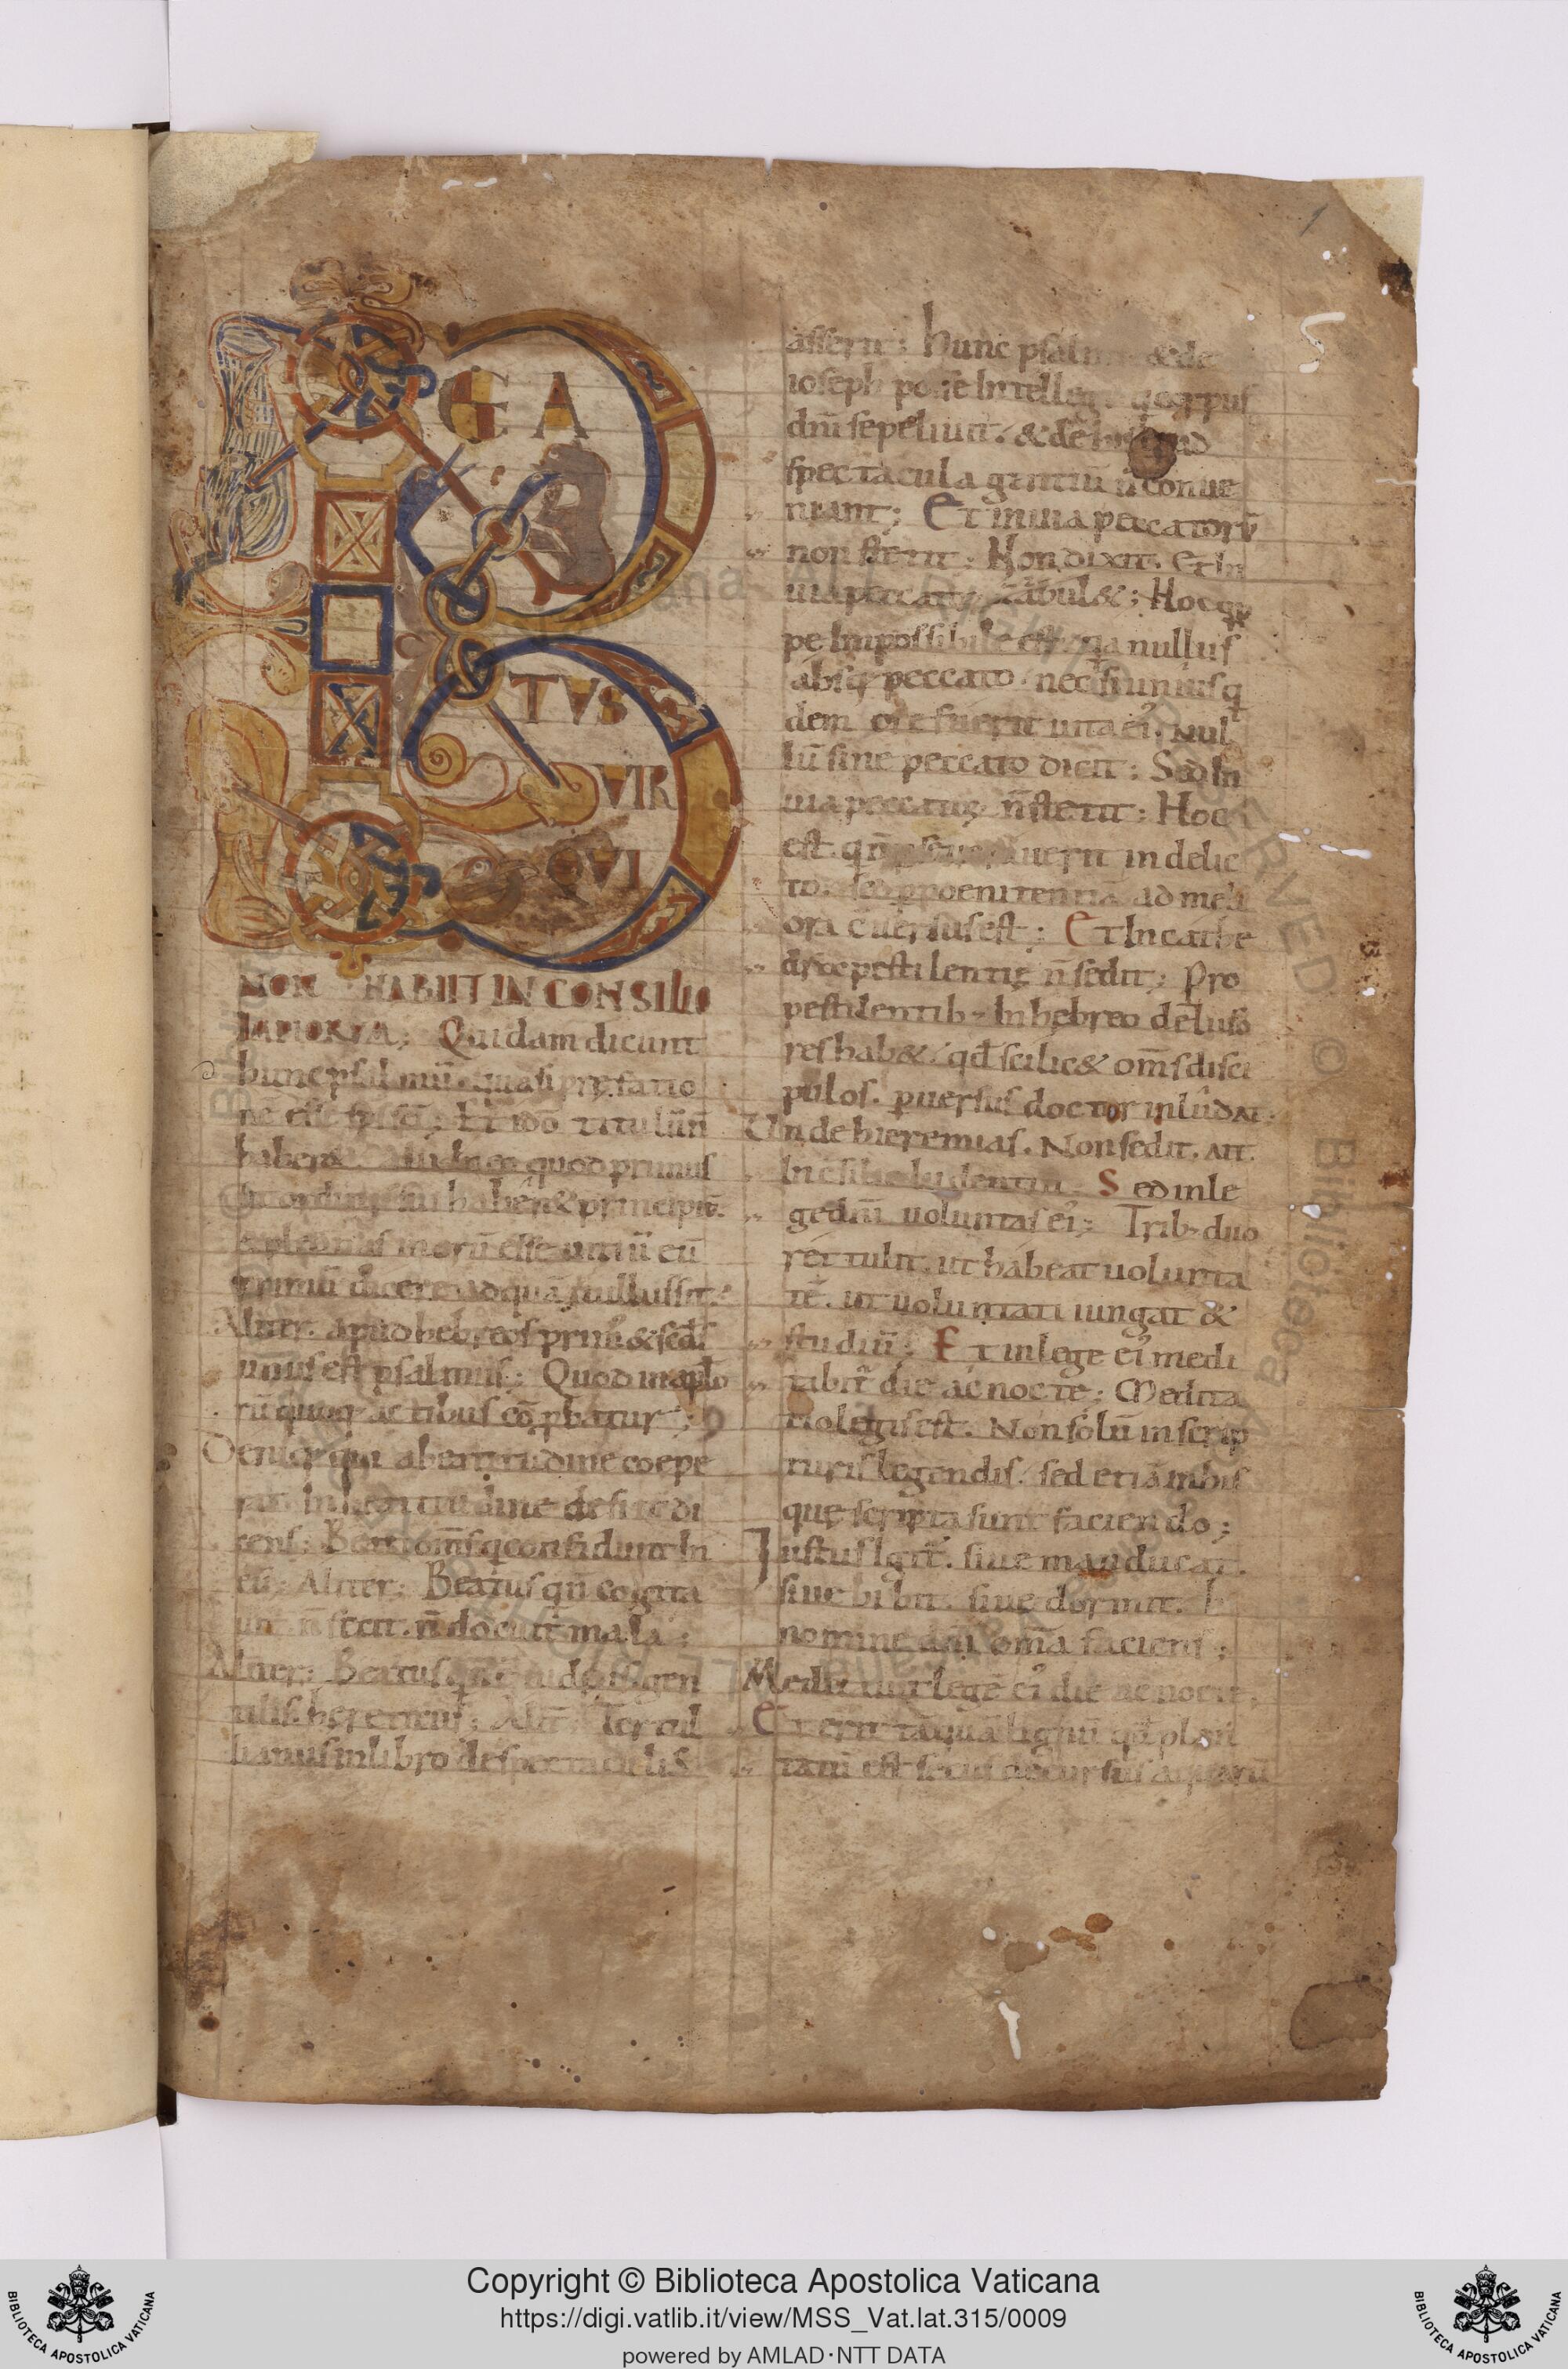 BEA
TVS
VIR
QVI
NON HABIIT IN CONSILIO
IMPIORVM; Quidam dicunt
hunc psalmū quasi prefatio
nē esse sp̄s sc̄i; Et ido titulūn̄
haberæ. quod primus
In ordine sui habær& principiū.
inorū esse unū eū
primū dicere adquā nullus sit.
Aliter. apud hebreos prim' & scd̄s
unus est psalmus; Quod in aplo
rū quoq; actibus cōp̄batur;
Deniq; qui abeatitudine coepe
rat In beatitudine desiit di
cens; Beati om̄s q confidunt In
eū; Aliter; Beatus qn̄ cogita
uit n̄ fecit. n̄ docuit mala;
Aliter; Beatus iudeus gen
tilis hereticus; Alit̄ Tertul
lianus in libro de spectaculis
asserit; hunc psalm & de
ioseph posse Intellegi q corpus
dn̄i sepeliuit. & de his ad
spectacula gentiū n̄ conue
niant; Et in uia peccatorū
non stetit; Non dixit. Et In
uia peccatorū n̄ ābul&; Hoc qp
pe Impossibile est. qa nullus
absq; peccato. nec si unius q
dem die fuerit uita ei'. Nul
lū sine peccato dicit; Sed In
uia peccatorꝝ n̄ stetit; Hoc
est. qn̄ perseuerauerit in delic
to. sed p poenitentiā ad meli
ora c̄uersus est; Et In cathe
dra pestilentię n̄ sedit; Pro
pestilentib; In hebreo delusо
res hab&. qd̄ scilic& om̄s disci
pulos. puersus doctor inludat.
Unde hieremias. Non sedit. ait.
In c̄silio ludentiū. Sed in le
ge dn̄i uoluntas ei'; Trib; duo
rettulit. ut habeat uolunta
tē. ut uoluntati iungat &
studiū; Et in lege ei' medi
tabit̄ die ac nocte; Medita
tio legis est. Non solū in scrip
turis legendis. sed etiā in his
quę scripta sunt faciendo;
Iustus Igit̄. siue manducat.
siue bibit. siue dormit. I
nomine dn̄i om̄a faciens;
Meditatur legē ei' die ac nocte;
Et erit tāquā lignū qd̄ plan
tatū est secus decursus aquarū
Copyright © Biblioteca Apostolica Vaticana
https://digi.vatlib.it/view/MSS_Vat.lat.315/0009
powered by AMLAD·NTT DATA
BIBLIOTECA APOSTOLICA VATICANA
BIBLIOTECA APOSTOLICA VATICANA